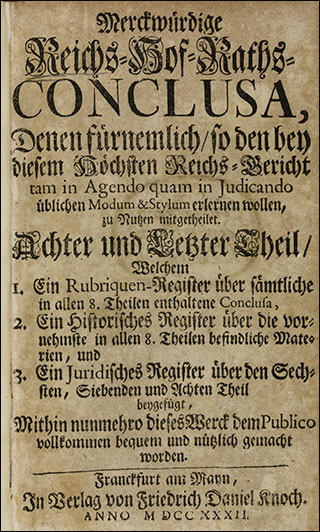 Merckwürdige
Reichs-Hof-Raths-
CONCLUSA,
Denen fürnemlich/ so den bey
diesem Höchsten Reichs-Gericht
tam in Agendo quam in Judicando
üblichen Modum & Stylum erlernen wollen,
zu Nutzen mitgetheilet.
Achter und Letzter Theil/
Welchem
1. Ein Rubriquen-Register über sämtliche
in allen 8. Theilen enthaltene Conclusa,
2. Ein Historisches Register über die vor-
nehmste in allen 8. Theilen befindliche Mate-
rien, und
3. Ein Juridisches Register über den Sechs-
sten, Siebenden und Achten Theil
beygefügt,
Mithin nunmehro dieses Werck dem Publico
vollkommen bequem und nützlich gemacht
worden.
Franckfurt am Mayn,
In Verlag von Friedrich Daniel Knoch.
ANNO M DCC XXXII.